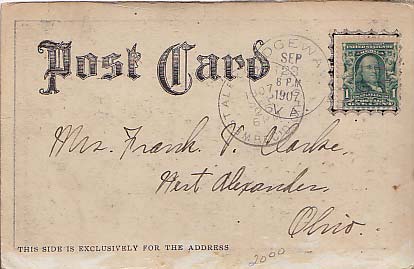 Post Card
SEP
8 P M
1907
VA.
1
Mrs. Frank V. Clarke,
West Alexander,
Ohio.
THIS SIDE IS EXCLUSIVELY FOR THE ADDRESS
2000